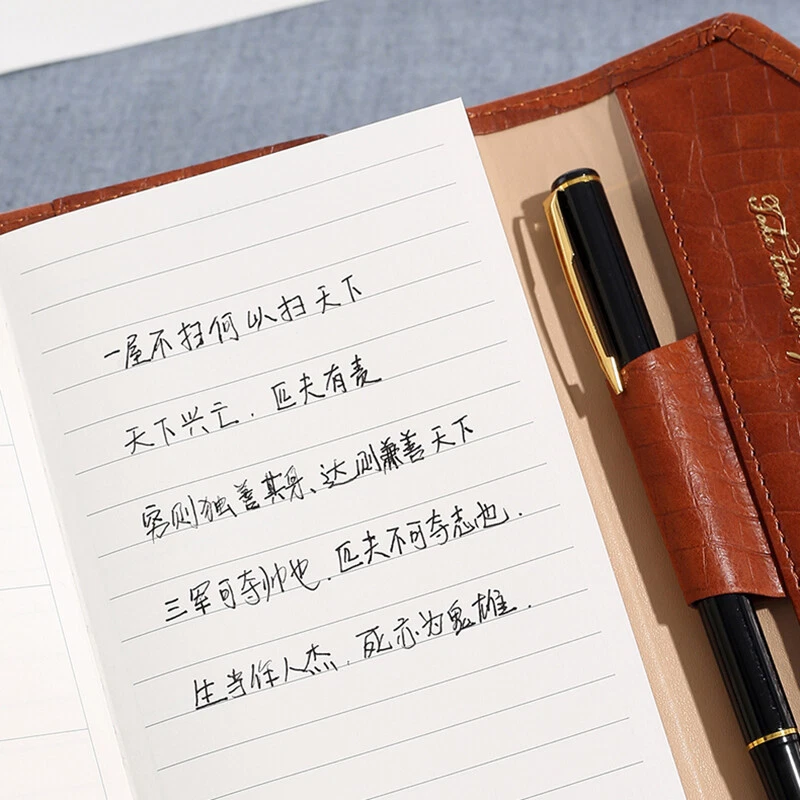 一屋不扫何以扫天下
天下兴亡，匹夫有责
穷则独善其身、达则兼善天下
三军可夺帅也，匹夫不可夺志也．
生当作人杰．死亦为鬼雄．
Take time